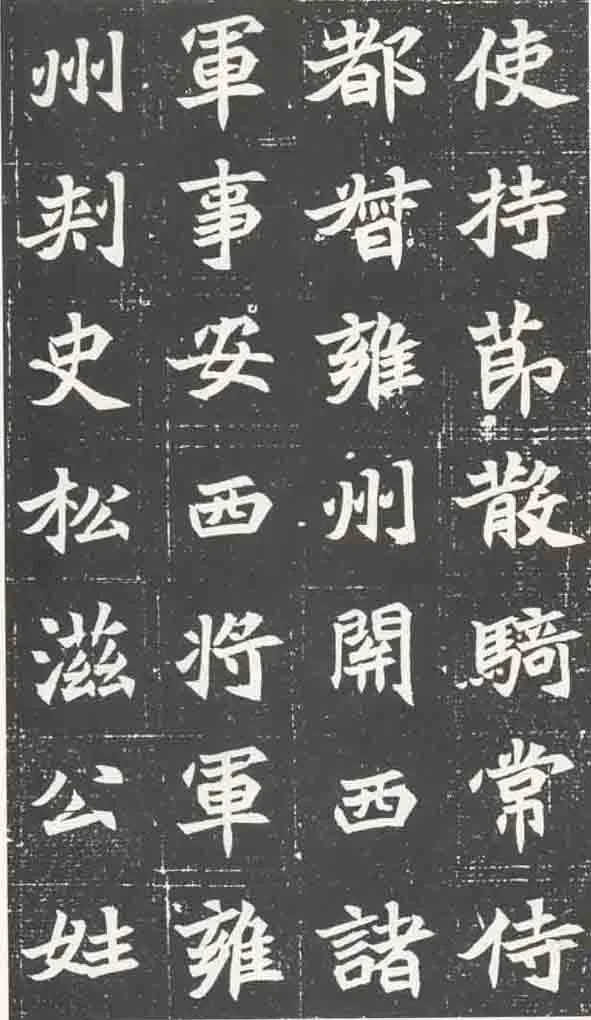 使持莭散騎常侍
都督雍州開西諸
軍事安西将軍雍
州刾史松滋公姓